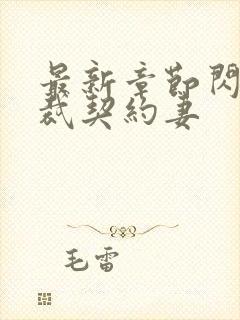 最新章節閃
裁契約妻
毛雷